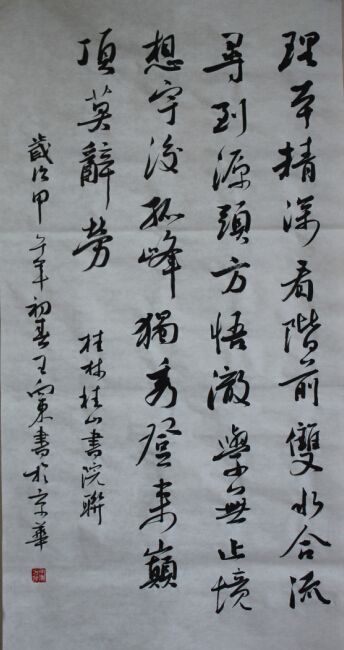 理本精深看階前雙水合流
尋到源頭方悟澈學無止境
想宇浚孤峰獨秀登來巔
頂莫辭勞
桂林桂山書院聯
歲次甲午年初春王東書於京華